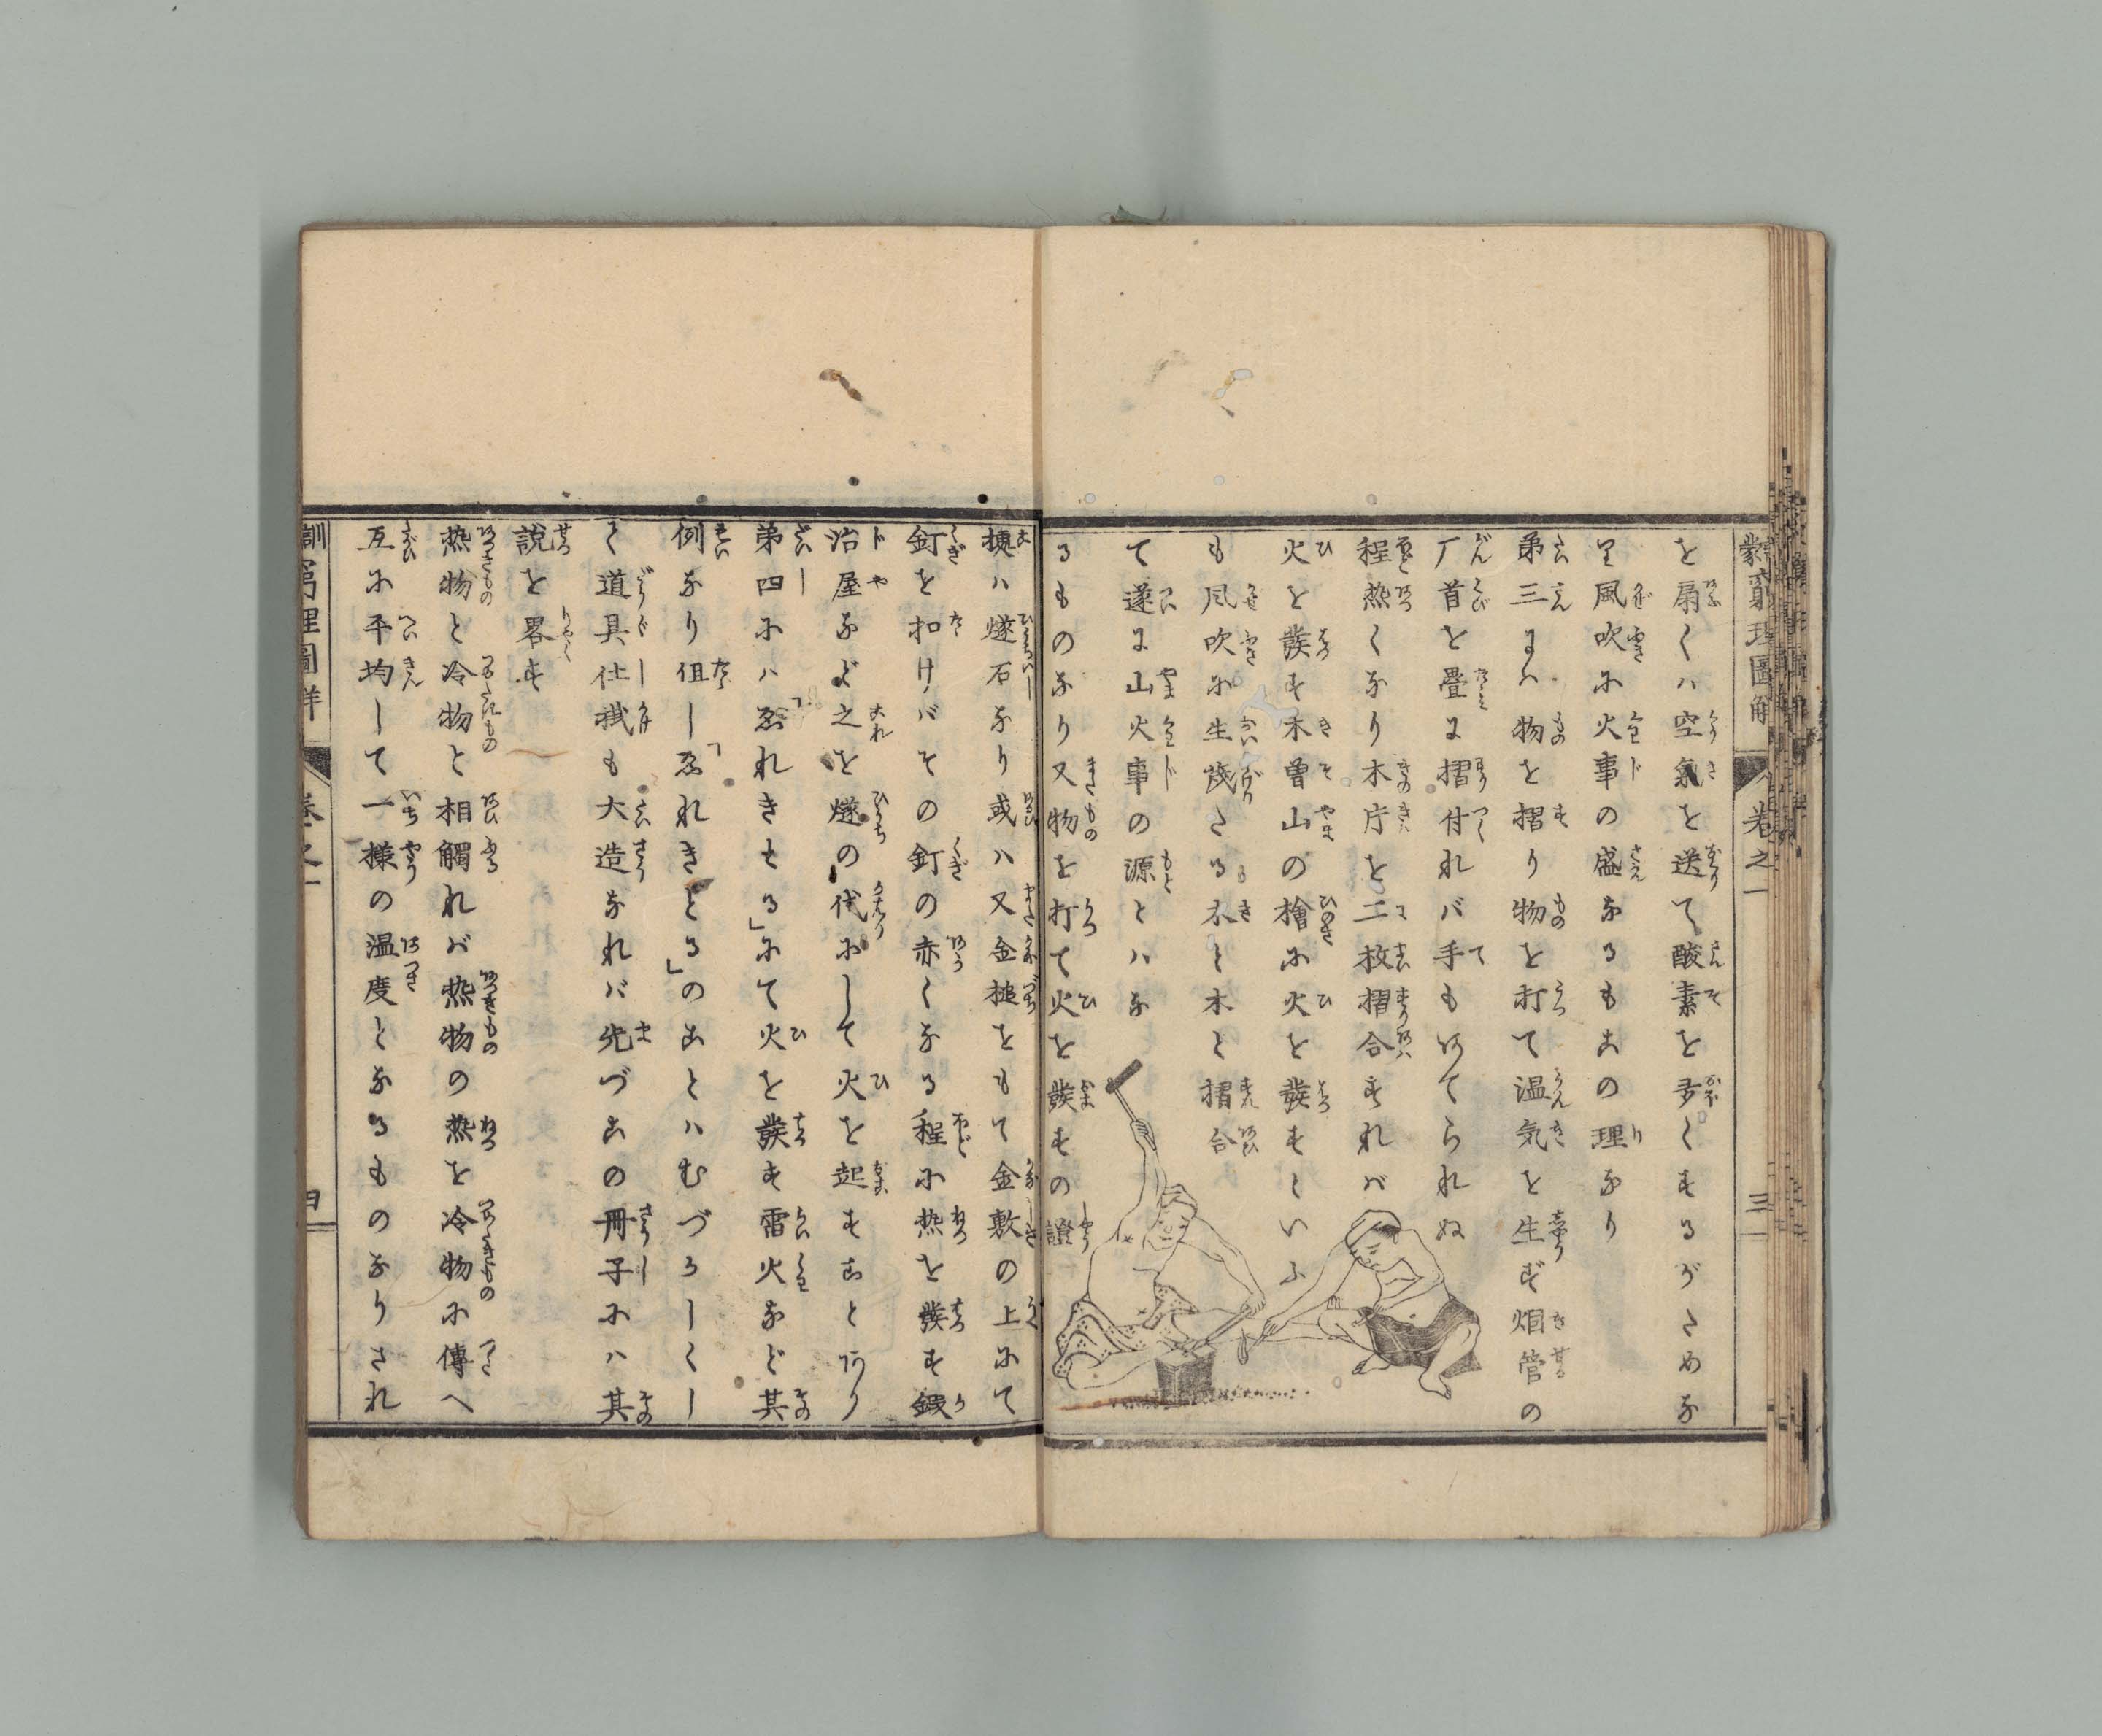 訓蒙窮理圖解 卷之一 三
を扇くハ空氣を送て酸素を多くするがためな
り風吹に火事の盛なるもこの理なり
弟三にハ物を摺り物を打て温気を生ず烟管の
厂首を畳に摺付れバ手もあてられぬ
程熱くなり木片を二枚摺合すれバ
火を發す木曽山の檜に火を發すといふ
も風吹に生茂たる木と木と摺合
て遂に山火事の源とハな
るものなり又物を打て火を發すの證
據ハ燧石なり或ハ又金槌をもて金敷の上にて
釘を扣けバその釘の赤くなる程に熱を發す鍜
冶屋などこれを燧の代にして火を起すことあり
弟四にハ「ゑれきとる」にて火を發す雷火など其
例なり但し「ゑれきとる」のことハむづろしくし
て道具仕掛も大造なれバ先づこの冊子にハ其
説を畧す
熱物と冷物と相觸れバ熱物の熱を冷物に傳へ
互に平均して一様の温度となるものなりされ
訓窮理圖解 卷之一 四